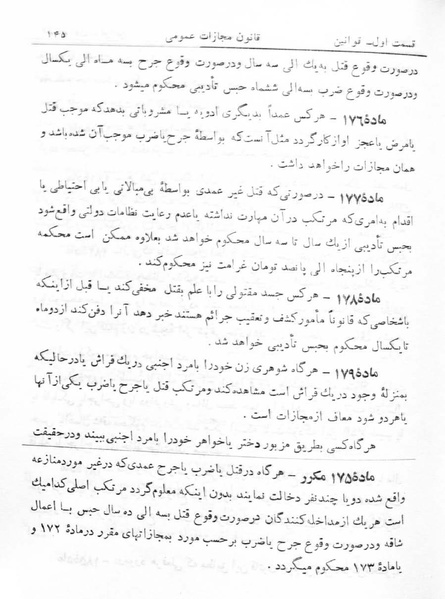 قسمت اول_ قوانین قانون مجازات عمومی ۱۴۵
درصورت وقوع قتل به‌یك الی سه سال ودرصورت وقوع جرح سه ماه الی یکسال
ودرصورت وقوع ضرب بسه‌الی ششماه حبس تأدیبی محکوم میشود
مادهٔ ۱۷۶ - هرکس عمداً بدیگری ادویه یسا مشروباتی بدهدکه موجب قتل
یامرض یاعجز اوازکارگردد مثل آنست‌که بواسطهٔ جرح‌یاضرب موجب‌آن شده‌باشد و
همان مجازات راخواهد داشت .
مادهٔ ۱۷۷ - درصورتی‌که قتل غیر عمدی بواسطهٔ بی‌مبالاتی یابی احتیاطی یا
اقدام بامری‌که مرتکب درآن مهارت نداشته یاعدم رعایت نظامات دولتی واقع‌شود
بحبس تأدیبی‌ازیك سال تا سه سال محکوم خواهد شد بعلاوه ممکن است محکمه
مرتکب‌را ازپنجاه الی پانصد تومان غرامت نیز محکوم‌کند.
مادهٔ ۱۷۸ - هرکس جسد مقتولی رابا علم بقتل مخفی‌کند یسا قبل ازاینکه
باشخاصی‌که قانوناً مأمورکشف وتعقیب جرائم هستند خبر دهد آنرا دفن‌کند ازدوماه
تایکسال محکوم بحبس تأدیبی خواهد شد .
مادهٔ ۱۷۹ - هرگاه شوهری زن خودرا بامرد اجنبی دریك فراش یادرحالیکه
بمنزلهٔ وجود دریك فراش است مشاهده‌کند ومرتکب قتل یاجرح یاضرب یکی‌ازآنها
یاهردو شود معاف ازمجازات است .
هرگاه‌کسی بطریق مزبور دختر یاخواهر خودرا بامرد اجنبی‌ببیند ودرحقیقت
مادهٔ ۱۷۵ مکرر - هرگاه درقتل یاضرب یاجرح عمدی‌که درغیر موردمنازعه
واقع شده دویا چندنفر دخالت نمایند بدون اینکه معلوم‌گردد مرتکب اصلی‌کدامیك
است هریك ازمداخل‌کنندگان درصورت وقوع قتل بسه الی ده سال حبس بـا اعمال
شاقه ودرصورت وقوع جرح یاضرب برحسب مورد بمجازاتهای مقرر درمادهٔ ۱۷۲ و
یامادهٔ ۱۷۳ محکوم میگردد .